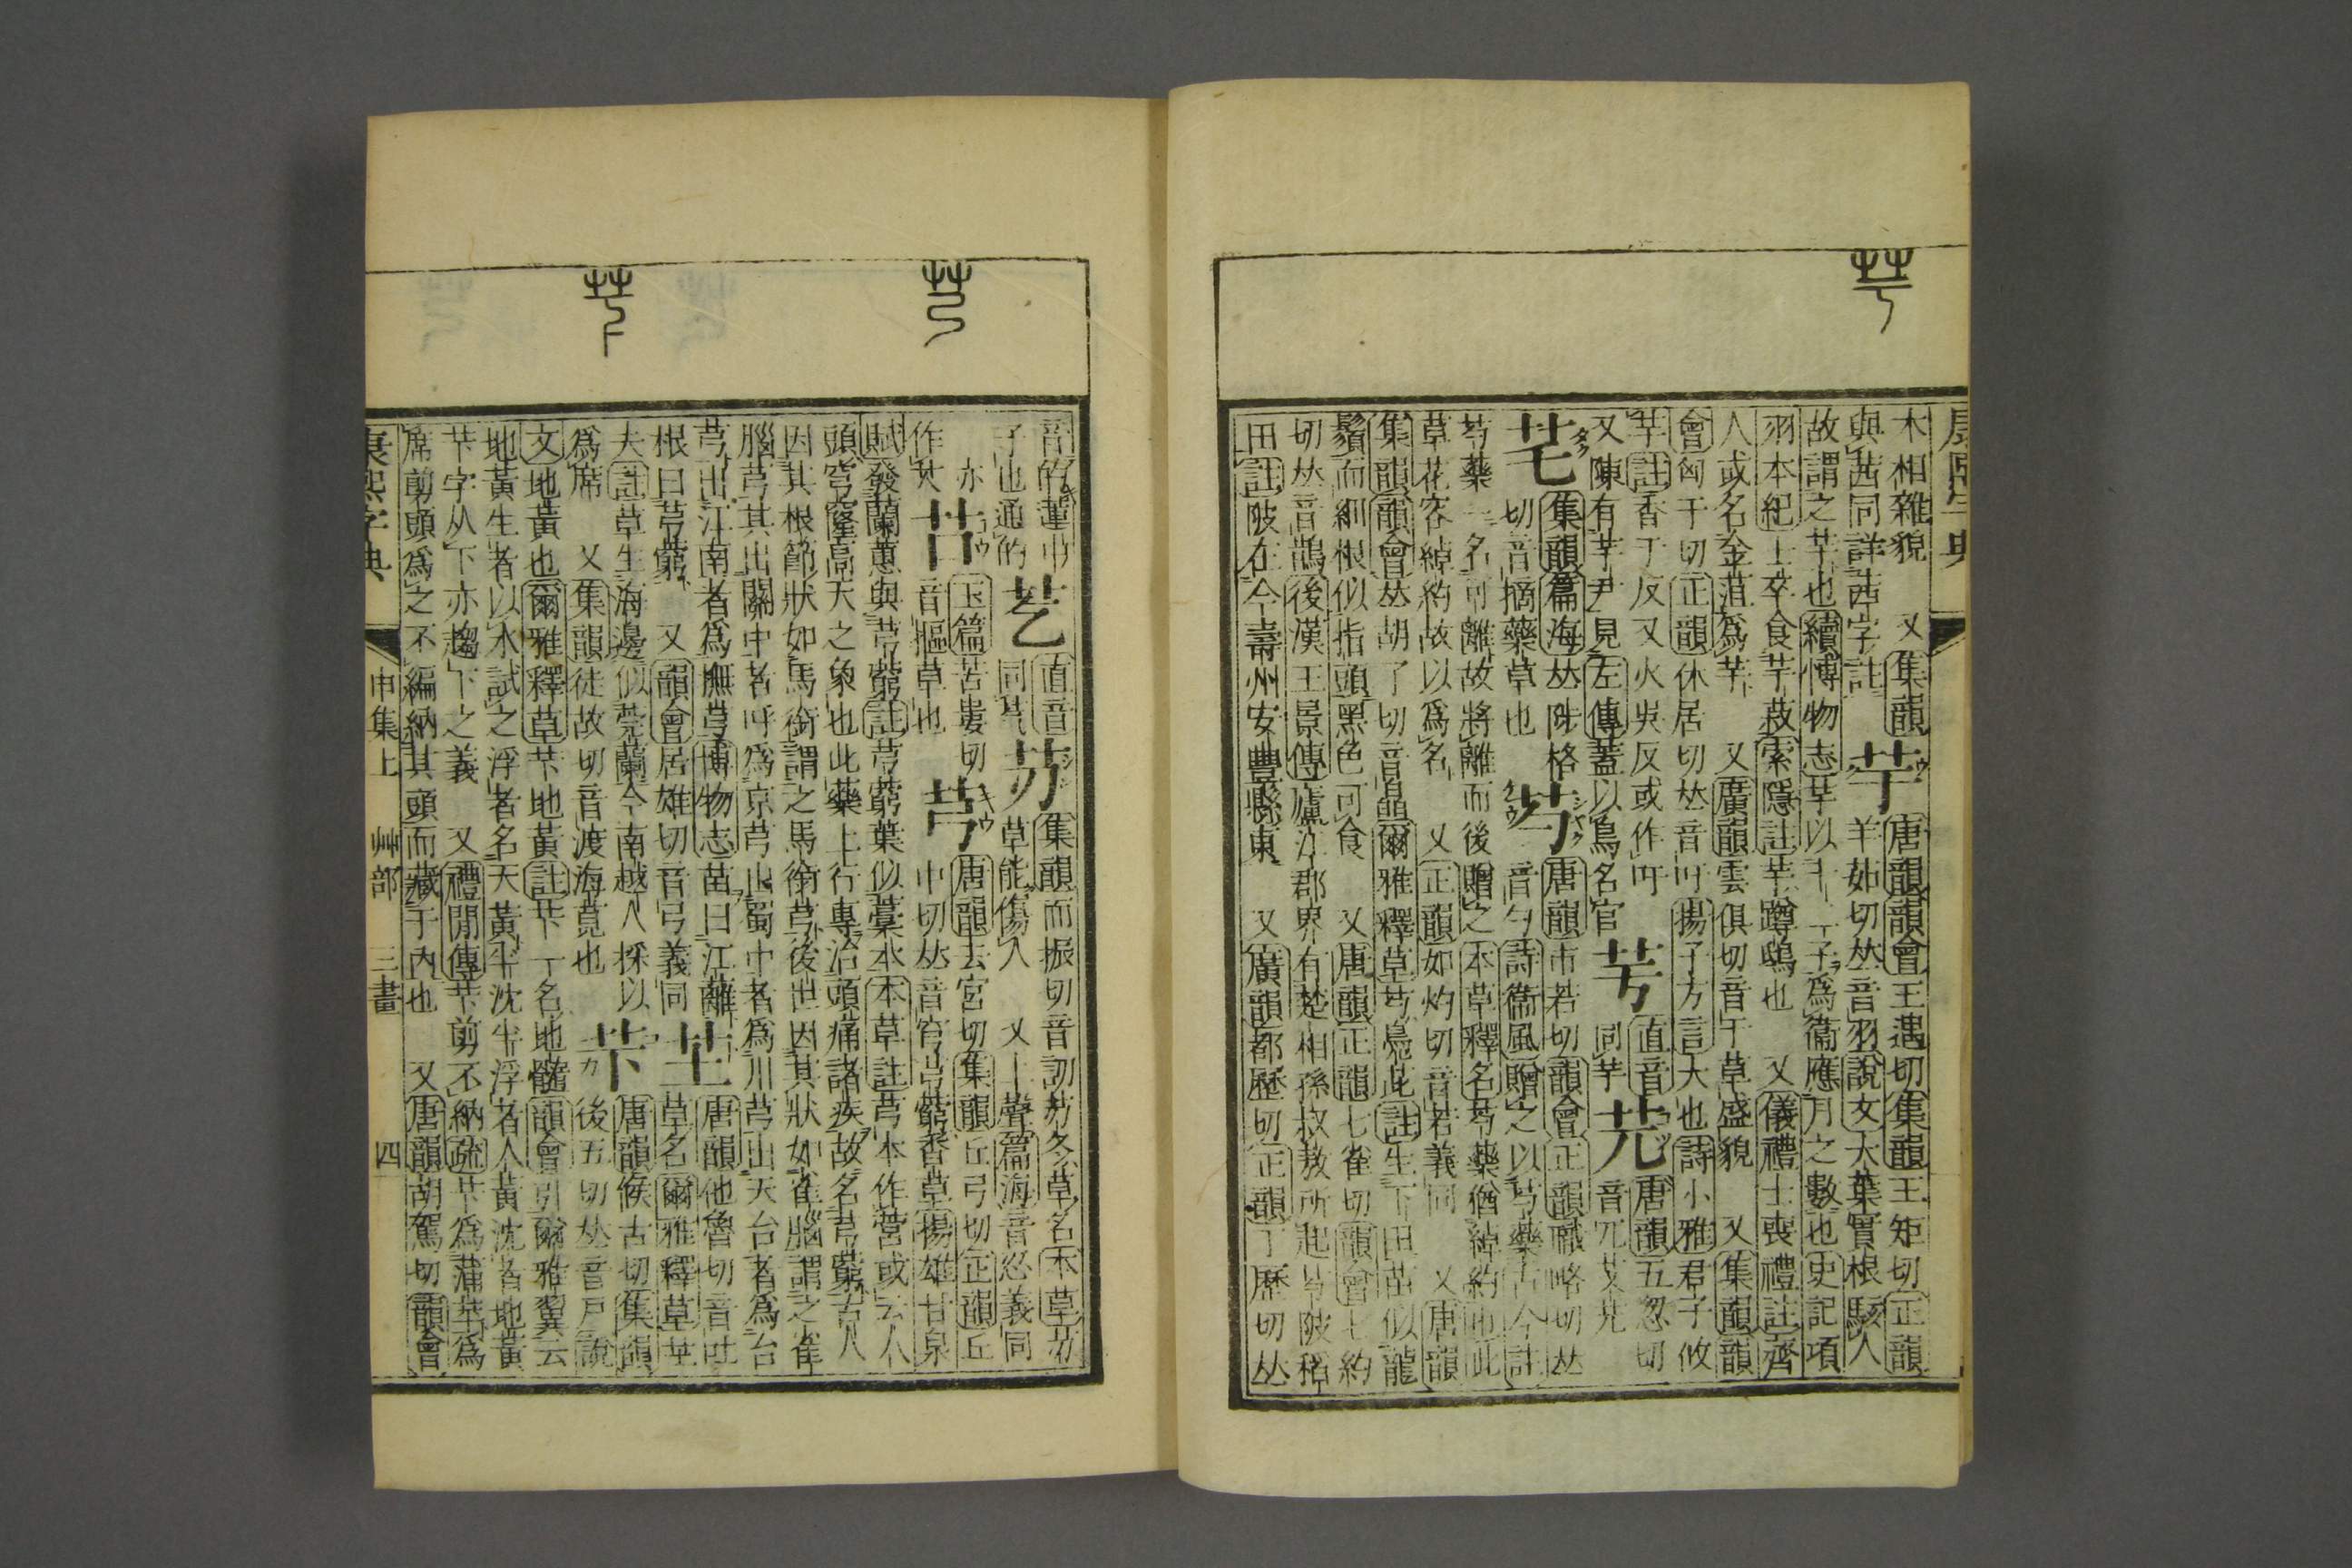 木相雜貌　又集韻
與茜同詳茜字註
芋
唐韻韻會王遇切集韻王矩切正韻
羊茹切𠀤音羽說文大葉實根駭人
故謂之芋也續博物志芋以十二子爲衞應月之數也史記項
羽本紀士卒食芋菽索隱註芋蹲鴟也　又儀禮士喪禮註齊
人或名全菹爲芋　又廣韻雲俱切音于草盛貌　又集韻韻
會匈于切正韻休居切𠀤音吁揚子方言大也詩小雅君子攸
芋註香于反又火吳反或作吁
又陳有芋尹見左傳蓋以鳥名官
芌
直音
同芋
芫
唐韻五忽切
音兀艾芫
芼
集韻篇海𠀤陟格
切音摘藥草也
芍
唐韻市若切韻會正韻職略切𠀤
音勺詩衞風贈之以芍藥古今註
芍藥一名可離故將離而後贈之本草釋名芍藥猶綽約也此
草花容綽約故以爲名　又正韻如灼切音若義同　又唐韻
集韻韻會𠀤胡了切音皛爾雅釋草芍鳧茈註生下田苗似龍
鬚而細根似指頭黑色可食　又唐韻正韻七雀切韻會七約
切𠀤音鵲後漢王景傳廬江郡界有楚相孫叔敖所起芍陂稻
田註陂在今壽州安豐縣東　又廣韻都歷切正韻丁歷切𠀤
音的蓮中
子也通的
亦
作艽
芞
直音
同芞
芀
集韻而振切音訒芀冬草名本草芀
草能傷人　又上聲篇海音忍義同
苷
玉篇苦婁切
音摳草也
芎
唐韻去宮切集韻丘弓切正韻丘
中切𠀤音穹芎藭香草揚雄甘泉
賦發蘭蕙與芎藭註芎藭葉似藁本本草註芎本作營或云人
頭穹窿高天之象也此藥上行專治頭痛諸疾故名芎藭古人
因其根節狀如馬銜謂之馬銜芎後世因其狀如雀腦謂之雀
腦芎其出關中者呼爲京芎出蜀中者爲川芎出天台者爲台
芎出江南者爲撫芎博物志苗曰江蘺
根曰芎藭　又韻會居雄切音弓義同
芏
唐韻他魯切音吐
草名爾雅釋草芏
夫註草生海邊似莞藺今南越人採以
爲席　又集韻徒故切音渡海莧也
芐
唐韻候古切集韻
後五切𠀤音戸說
文地黃也爾雅釋草芐地黃註芐一名地髓韻會引爾雅翼云
地黃生者以水試之浮者名天黃半沈半浮者人黃沈者地黃
芐字从下亦趨下之義　又禮閒傳芐剪不納疏芐爲蒲苹爲
席剪頭爲之不編納其頭而藏于內也　又唐韻胡駕切韻會
康熙字典　申集上　艸部　三畫　四